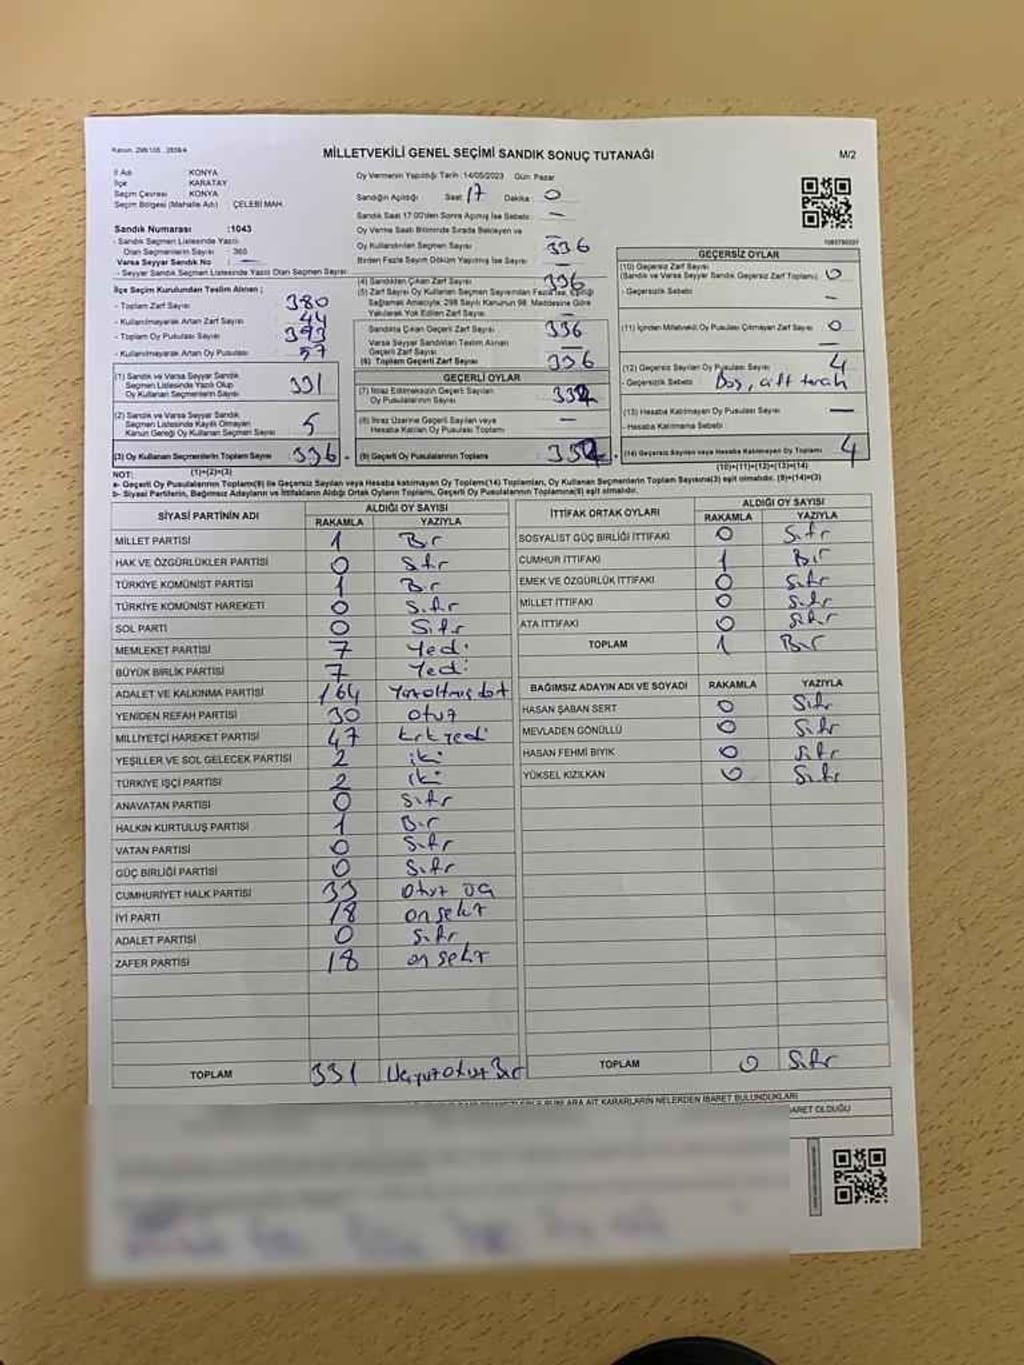 MİLLETVEKİLİ GENEL SEÇİMİ SANDIK SONUÇ TUTANAĞI
M/2
İl Adı KONYA
İlçe KARATAY
Seçim Çevresi KONYA
Seçim Bölgesi (Mahalle Adı) : ÇELEBİ MAH.
Sandık Numarası :1043
- Sandık Seçmen Listesinde Yazılı
Olan Seçmenlerin Sayısı : 360
Varsa Seyyar Sandık No : —
- Seyyar Sandık Seçmen Listesinde Yazılı Olan Seçmen Sayısı:
İlçe Seçim Kurulundan Teslim Alınan ;
- Toplam Zarf Sayısı 380
- Kullanılmayarak Artan Zarf Sayısı 44
- Toplam Oy Pusulası Sayısı 393
- Kullanılmayarak Artan Oy Pusulası 57
(1) Sandık ve Varsa Seyyar Sandık
Seçmen Listesinde Yazılı Olup
Oy Kullanan Seçmen Sayısı 331
(2) Sandık ve Varsa Seyyar Sandık
Seçmen Listesinde Kayıtlı Olmayan
Kanun Gereği Oy Kullanan Seçmen Sayısı 5
(3) Oy Kullanan Seçmenlerin Toplam Sayısı 336
Oy Vermenin Yapıldığı Tarih :14/05/2023 Gün: Pazar
Sandığın Açıldığı Saat : 17 Dakika : 0
Sandık Saat 17:00'den Sonra Açılmış İse Sebebi : —
Oy Verme Saati Bitiminde Sırada Bekleyen ve
Oy Kullandırılan Seçmen Sayısı — 336
Birden Fazla Sayım Döküm Yapılmış İse Sayısı : —
(4) Sandıktan Çıkan Zarf Sayısı 336
(5) Zarf Sayısı Oy Kullanan Seçmen Sayısından Fazla İse, Eşitliği
Sağlamak Amacıyla; 298 Sayılı Kanunun 98. Maddesine Göre
Yakılarak Yok Edilen Zarf Sayısı —
Sandıkta Çıkan Geçerli Zarf Sayısı 336
Varsa Seyyar Sandıktan Teslim Alınan
Geçerli Zarf Sayısı —
(6) Toplam Geçerli Zarf Sayısı 336
GEÇERLİ OYLAR
(7) İtiraz Edilmeksizin Geçerli Sayılan
Oy Pusulalarının Sayısı 332
(8) İtiraz Üzerine Geçerli Sayılan veya
Hesaba Katılan Oy Pusulası Toplamı —
(9) Geçerli Oy Pusulalarının Toplamı 332
GEÇERSİZ OYLAR
(10) Geçersiz Zarf Sayısı
(Sandık ve Varsa Seyyar Sandık Geçersiz Zarf Toplamı) 0
- Geçersizlik Sebebi —
(11) İçinden Milletvekili Oy Pusulası Çıkmayan Zarf Sayısı 0
—
(12) Geçersiz Sayılan Oy Pusulası Sayısı 4
- Geçersizlik Sebebi Boş, çift tercih
(13) Hesaba Katılmayan Oy Pusulası Sayısı —
- Hesaba Katılmama Sebebi
(14) Geçersiz Sayılan veya Hesaba Katılmayan Oy Toplamı 4
NOT: (1)+(2)=(3) (10)+(11)+(12)+(13)=(14)
a- Geçerli Oy Pusulalarının Toplamı(9) ile Geçersiz Sayılan veya Hesaba katılmayan Oy Toplamı(14) Toplamları, Oy Kullanan Seçmenlerin Toplam Sayısına(3) eşit olmalıdır. (9)+(14)=(3)
b- Siyasi Partilerin, Bağımsız Adayların ve İttifakların Aldığı Ortak Oyların Toplamı, Geçerli Oy Pusulalarının Toplamına(9) eşit olmalıdır.
SİYASİ PARTİNİN ADI ALDIĞI OY SAYISI
RAKAMLA YAZIYLA
MİLLET PARTİSİ 1 Bir
HAK VE ÖZGÜRLÜKLER PARTİSİ 0 Sıfır
TÜRKİYE KOMÜNİST PARTİSİ 1 Bir
TÜRKİYE KOMÜNİST HAREKETİ 0 Sıfır
SOL PARTİ 0 Sıfır
MEMLEKET PARTİSİ 7 Yedi
BÜYÜK BİRLİK PARTİSİ 7 Yedi
ADALET VE KALKINMA PARTİSİ 164 Yüzaltmış dört
YENİDEN REFAH PARTİSİ 30 otuz
MİLLİYETÇİ HAREKET PARTİSİ 47 kırkyedi
YEŞİLLER VE SOL GELECEK PARTİSİ 2 iki
TÜRKİYE İŞÇİ PARTİSİ 2 iki
ANAVATAN PARTİSİ 0 Sıfır
HALKIN KURTULUŞ PARTİSİ 1 Bir
VATAN PARTİSİ 0 Sıfır
GÜÇ BİRLİĞİ PARTİSİ 0 Sıfır
CUMHURİYET HALK PARTİSİ 33 otuz üç
İYİ PARTİ 18 on sekiz
ADALET PARTİSİ 0 Sıfır
ZAFER PARTİSİ 18 on sekiz
TOPLAM 331 Üçyüzotuz Bir
İTTİFAK ORTAK OYLARI ALDIĞI OY SAYISI
RAKAMLA YAZIYLA
SOSYALİST GÜÇ BİRLİĞİ İTTİFAKI 0 Sıfır
CUMHUR İTTİFAKI 1 Bir
EMEK VE ÖZGÜRLÜK İTTİFAKI 0 Sıfır
MİLLET İTTİFAKI 0 Sıfır
ATA İTTİFAKI 0 Sıfır
TOPLAM 1 Bir
BAĞIMSIZ ADAYIN ADI VE SOYADI RAKAMLA YAZIYLA
HASAN ŞABAN SERT 0 Sıfır
MEVLADEN GÖNÜLLÜ 0 Sıfır
HASAN FEHMİ BIYIK 0 Sıfır
YÜKSEL KIZILKAN 0 Sıfır
TOPLAM 0 Sıfır
ARA AİT KARARLARIN NELERDEN İBARET BULUNDUKLARI
BARET OLDUĞU